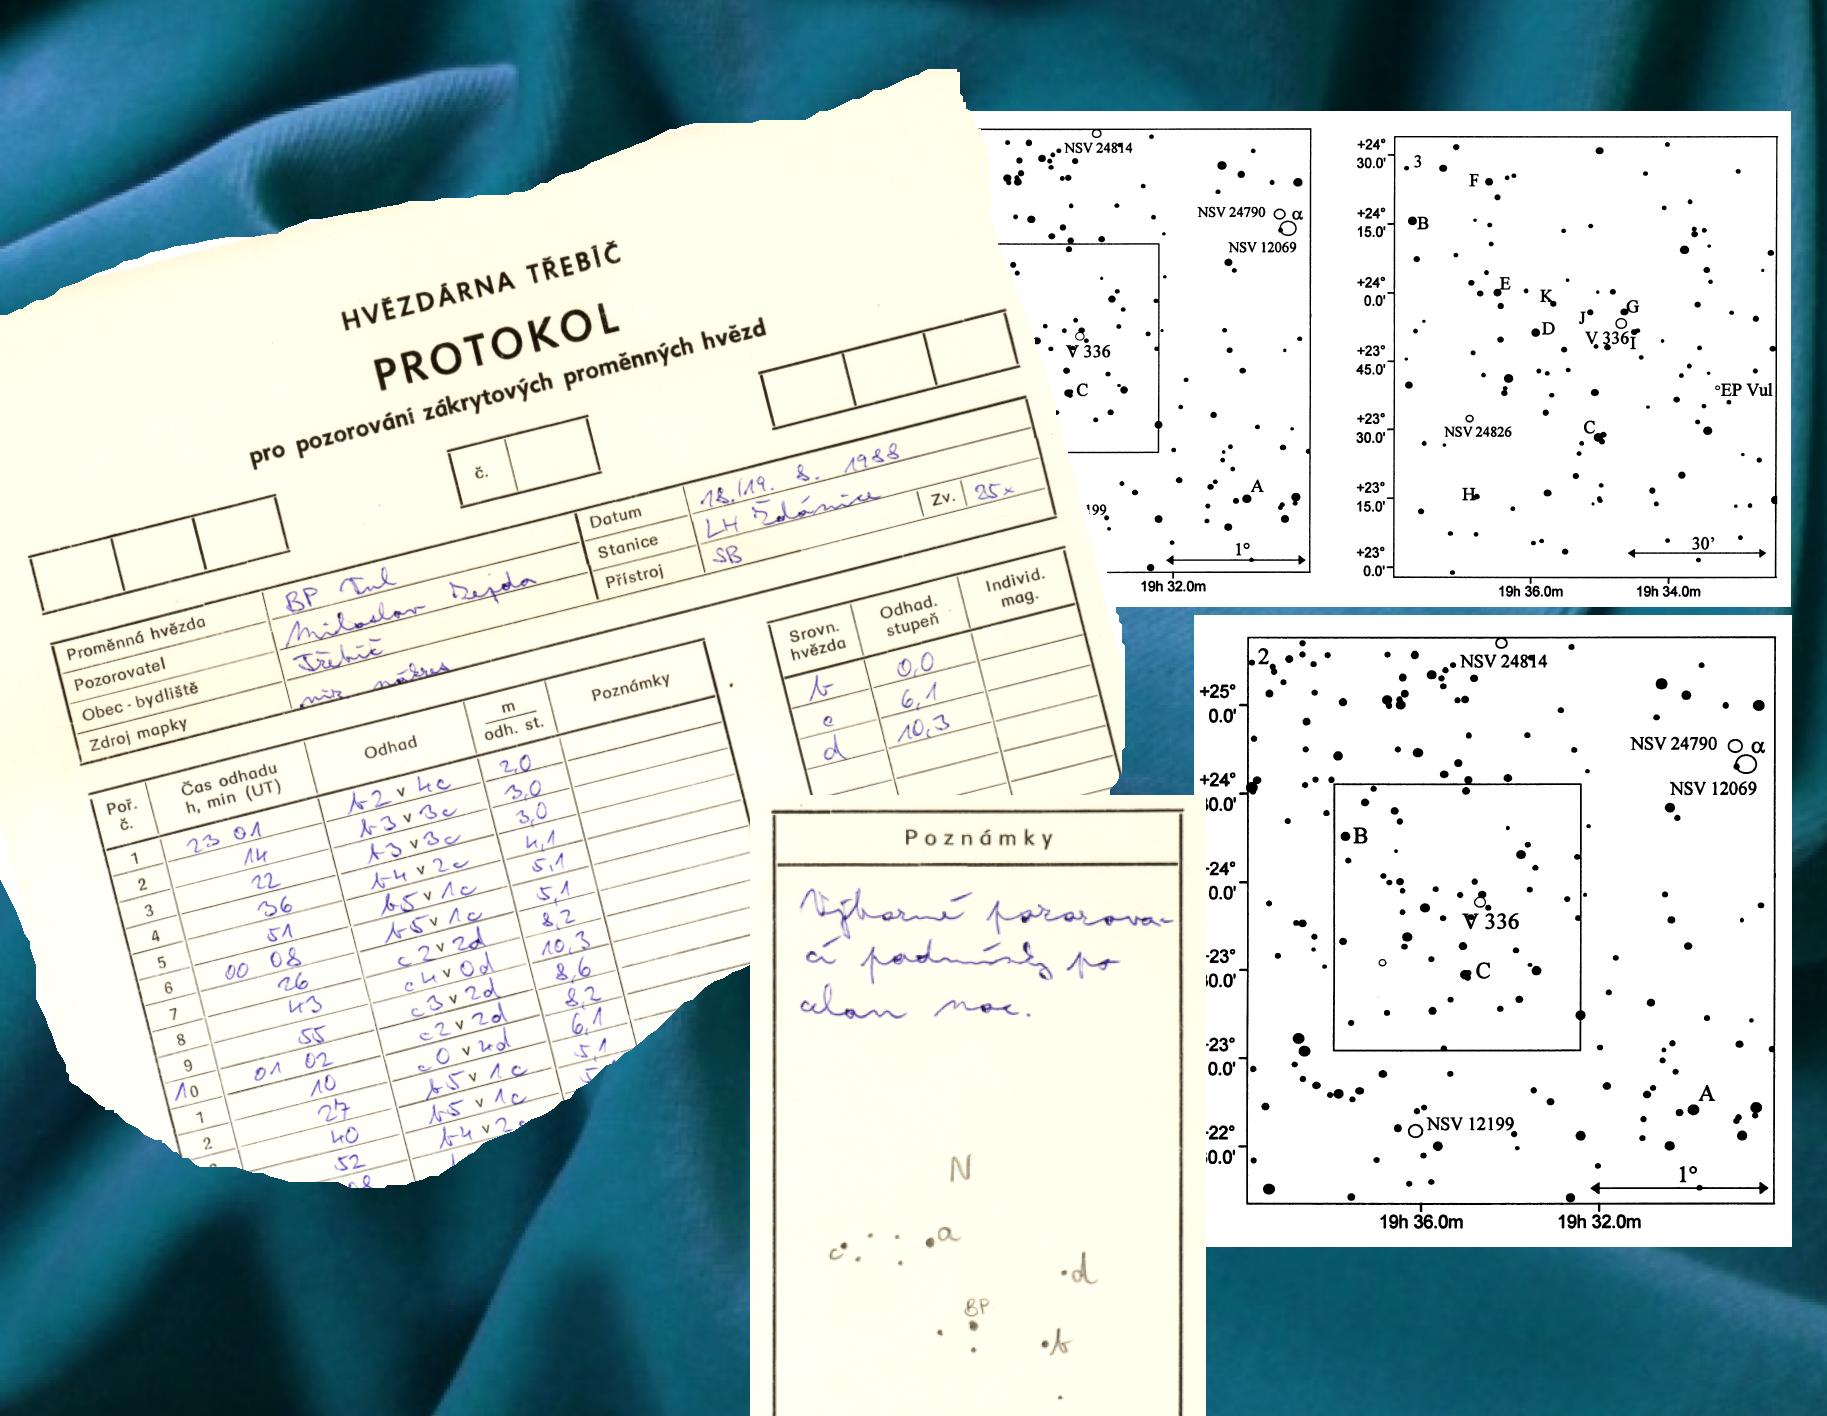 HVĚZDÁRNA TŘEBÍČ
PROTOKOL
pro pozorování zákrytových proměnných hvězd
č.
Proměnná hvězda BP Vul
Pozorovatel Miloslav Zejda
Obec - bydliště Třebíč
Zdroj mapky viz nákres
Datum 18./19. 8. 1988
Stanice LH Ždánice
Přístroj SB
Zv. 25x
Poř. č.
Čas odhadu h, min (UT)
Odhad
m
odh. st.
Poznámky
1 23 01 b2v4c 2,0
2 14 b3v3c 3,0
3 22 b3v3c 3,0
4 36 b4v2c 4,1
5 51 b5v1c 5,1
6 00 08 b5v1c 5,1
7 26 c2v2d 8,2
8 43 c4v0d 10,3
9 55 c3v2d 8,6
10 01 02 c2v2d 8,2
1 10 c0v4d 6,1
2 27 b5v1c 5,1
40 b5v1c
52 b4v2c
08
Srovn. hvězda
Odhad. stupeň
Individ. mag.
b 0,0
c 6,1
d 10,3
Poznámky
Výborné pozorova-
cí podmínky po
celou noc.
N
c
a
d
BP
b
NSV 24814
NSV 24790
α
NSV 12069
V 336
C
A
199
1°
19h 32.0m
3
+24° 30.0'
+24° 15.0'
+24° 0.0'
+23° 45.0'
+23° 30.0'
+23° 15.0'
+23° 0.0'
F
B
E
K
G
J
D
V 336
I
EP Vul
NSV 24826
C
H
30'
19h 36.0m
19h 34.0m
2
NSV 24814
+25° 0.0'
NSV 24790
α
NSV 12069
+24° 30.0'
B
-24° 0.0'
V 336
-23° 30.0'
C
-23° 0.0'
A
NSV 12199
-22° 30.0'
1°
19h 36.0m
19h 32.0m